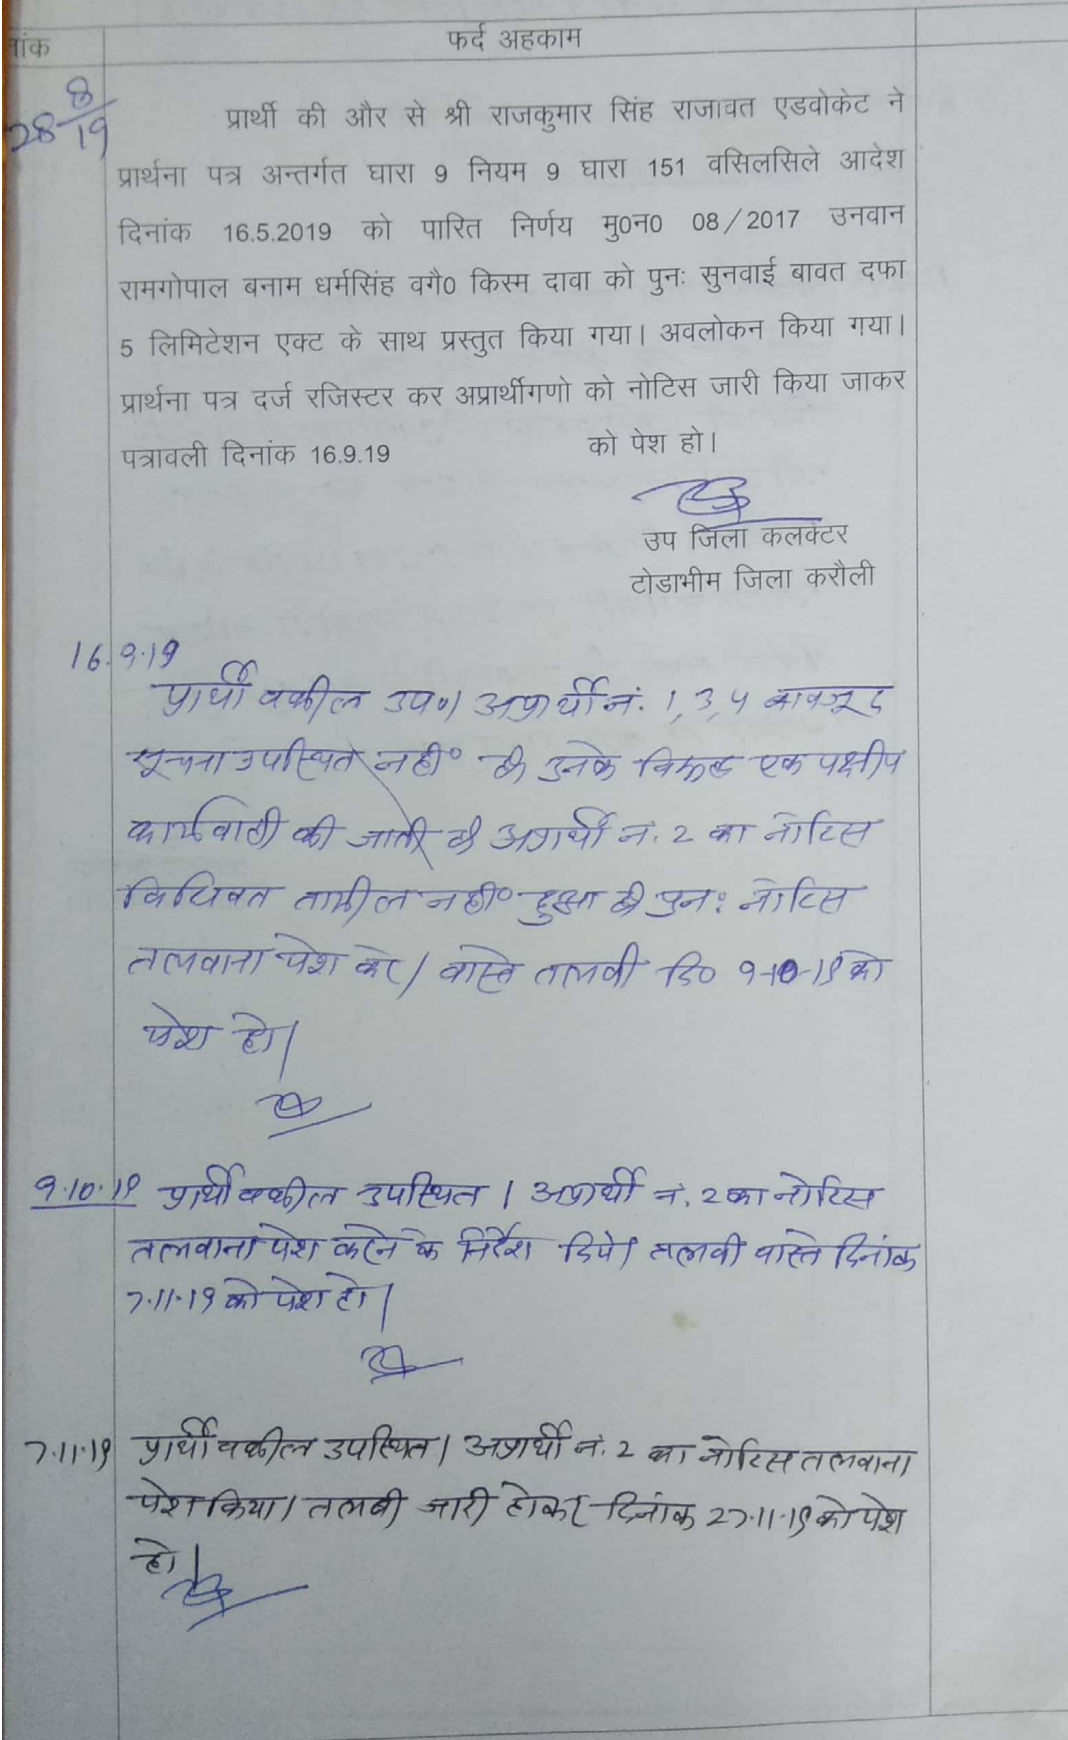 नांक फर्द अहकाम
28 8/19
प्रार्थी की और से श्री राजकुमार सिंह राजावत एडवोकेट ने
प्रार्थना पत्र अन्तर्गत घारा 9 नियम 9 घारा 151 वसिलसिले आदेश
दिनांक 16.5.2019 को पारित निर्णय मु0न0 08/2017 उनवान
रामगोपाल बनाम धर्मसिंह वगै0 किस्म दावा को पुनः सुनवाई बावत दफा
5 लिमिटेशन एक्ट के साथ प्रस्तुत किया गया। अवलोकन किया गया।
प्रार्थना पत्र दर्ज रजिस्टर कर अप्रार्थीगणो को नोटिस जारी किया जाकर
पत्रावली दिनांक 16.9.19 को पेश हो।
उप जिला कलक्टर
टोडाभीम जिला करौली
16.9.19
प्रार्थी वकील उप०। अप्रार्थी नं. 1, 3, 4 बावजूद
सूचना उपस्थित नहीं है उनके विरूद्ध एक पक्षीय
कार्यवाही की जाती है अप्रार्थी नं. 2 का नोटिस
विधिवत तामील नहीं हुआ है पुनः नोटिस
तलवाना पेश करे। वास्ते तलवी दि० 9-10-19 को
पेश हो।
9.10.19 प्रार्थी वकील उपस्थित। अप्रार्थी नं. 2 का नोटिस
तलवाना पेश करने के निर्देश दिये। तलवी वास्ते दिनांक
7.11.19 को पेश हो।
7.11.19 प्रार्थी वकील उपस्थित। अप्रार्थी नं. 2 का नोटिस तलवाना
पेश किया। तलवी जारी होकर दिनांक 27.11.19 को पेश
हो।